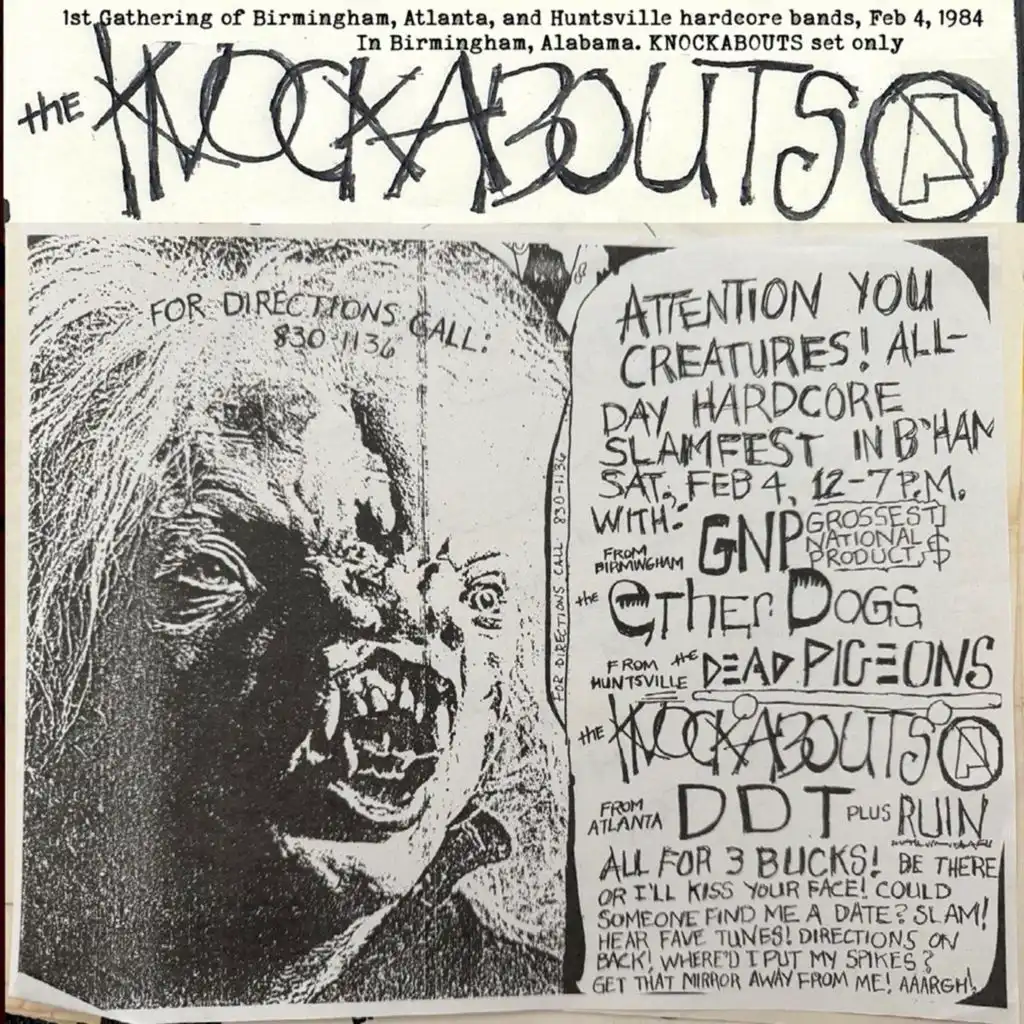 1st Gathering of Birmingham, Atlanta, and Huntsville hardcore bands, Feb 4, 1984
In Birmingham, Alabama. KNOCKABOUTS set only
the KNOCKABOUTS
FOR DIRECTIONS CALL:
830-1136
FOR DIRECTIONS CALL 830-1136
ATTENTION YOU
CREATURES! ALL-
DAY HARDCORE
SLAMFEST IN B'HAM
SAT., FEB 4, 12-7 P.M.
WITH:
FROM BIRMINGHAM GNP GROSSEST NATIONAL PRODUCT, $
the Other DOGS
FROM HUNTSVILLE the DEAD PIGEONS
the KNOCKABOUTS
FROM ATLANTA DDT PLUS RUIN
ALL FOR 3 BUCKS! BE THERE
OR I'LL KISS YOUR FACE! COULD
SOMEONE FIND ME A DATE? SLAM!
HEAR FAVE TUNES! DIRECTIONS ON
BACK! WHERE'D I PUT MY SPIKES?
GET THAT MIRROR AWAY FROM ME! AAARGH!